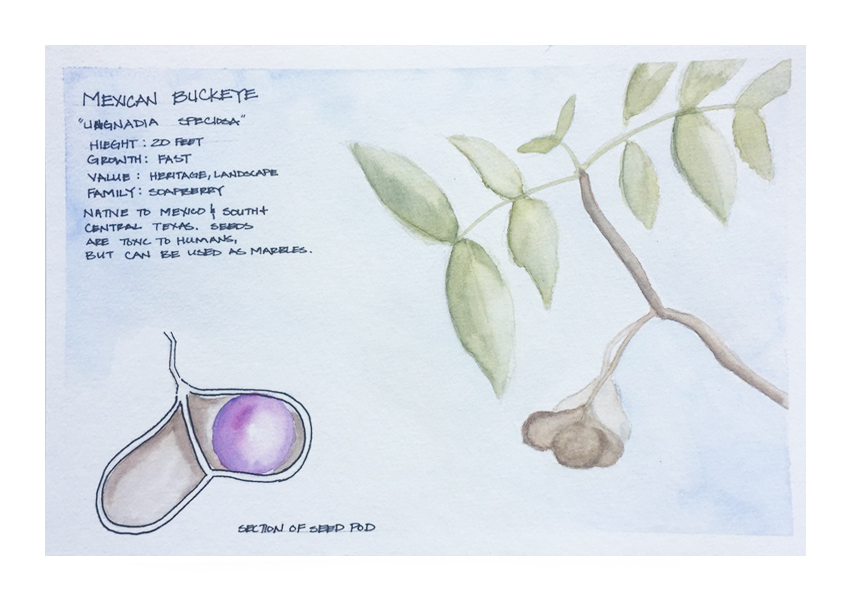 MEXICAN BUCKEYE
"UNGNADIA SPECIOSA"
HIEGHT : 20 FEET
GROWTH : FAST
VALUE : HERITAGE, LANDSCAPE
FAMILY : SOAPBERRY
NATIVE TO MEXICO & SOUTH+
CENTRAL TEXAS. SEEDS
ARE TOXIC TO HUMANS,
BUT CAN BE USED AS MARBLES.
SECTION OF SEED POD